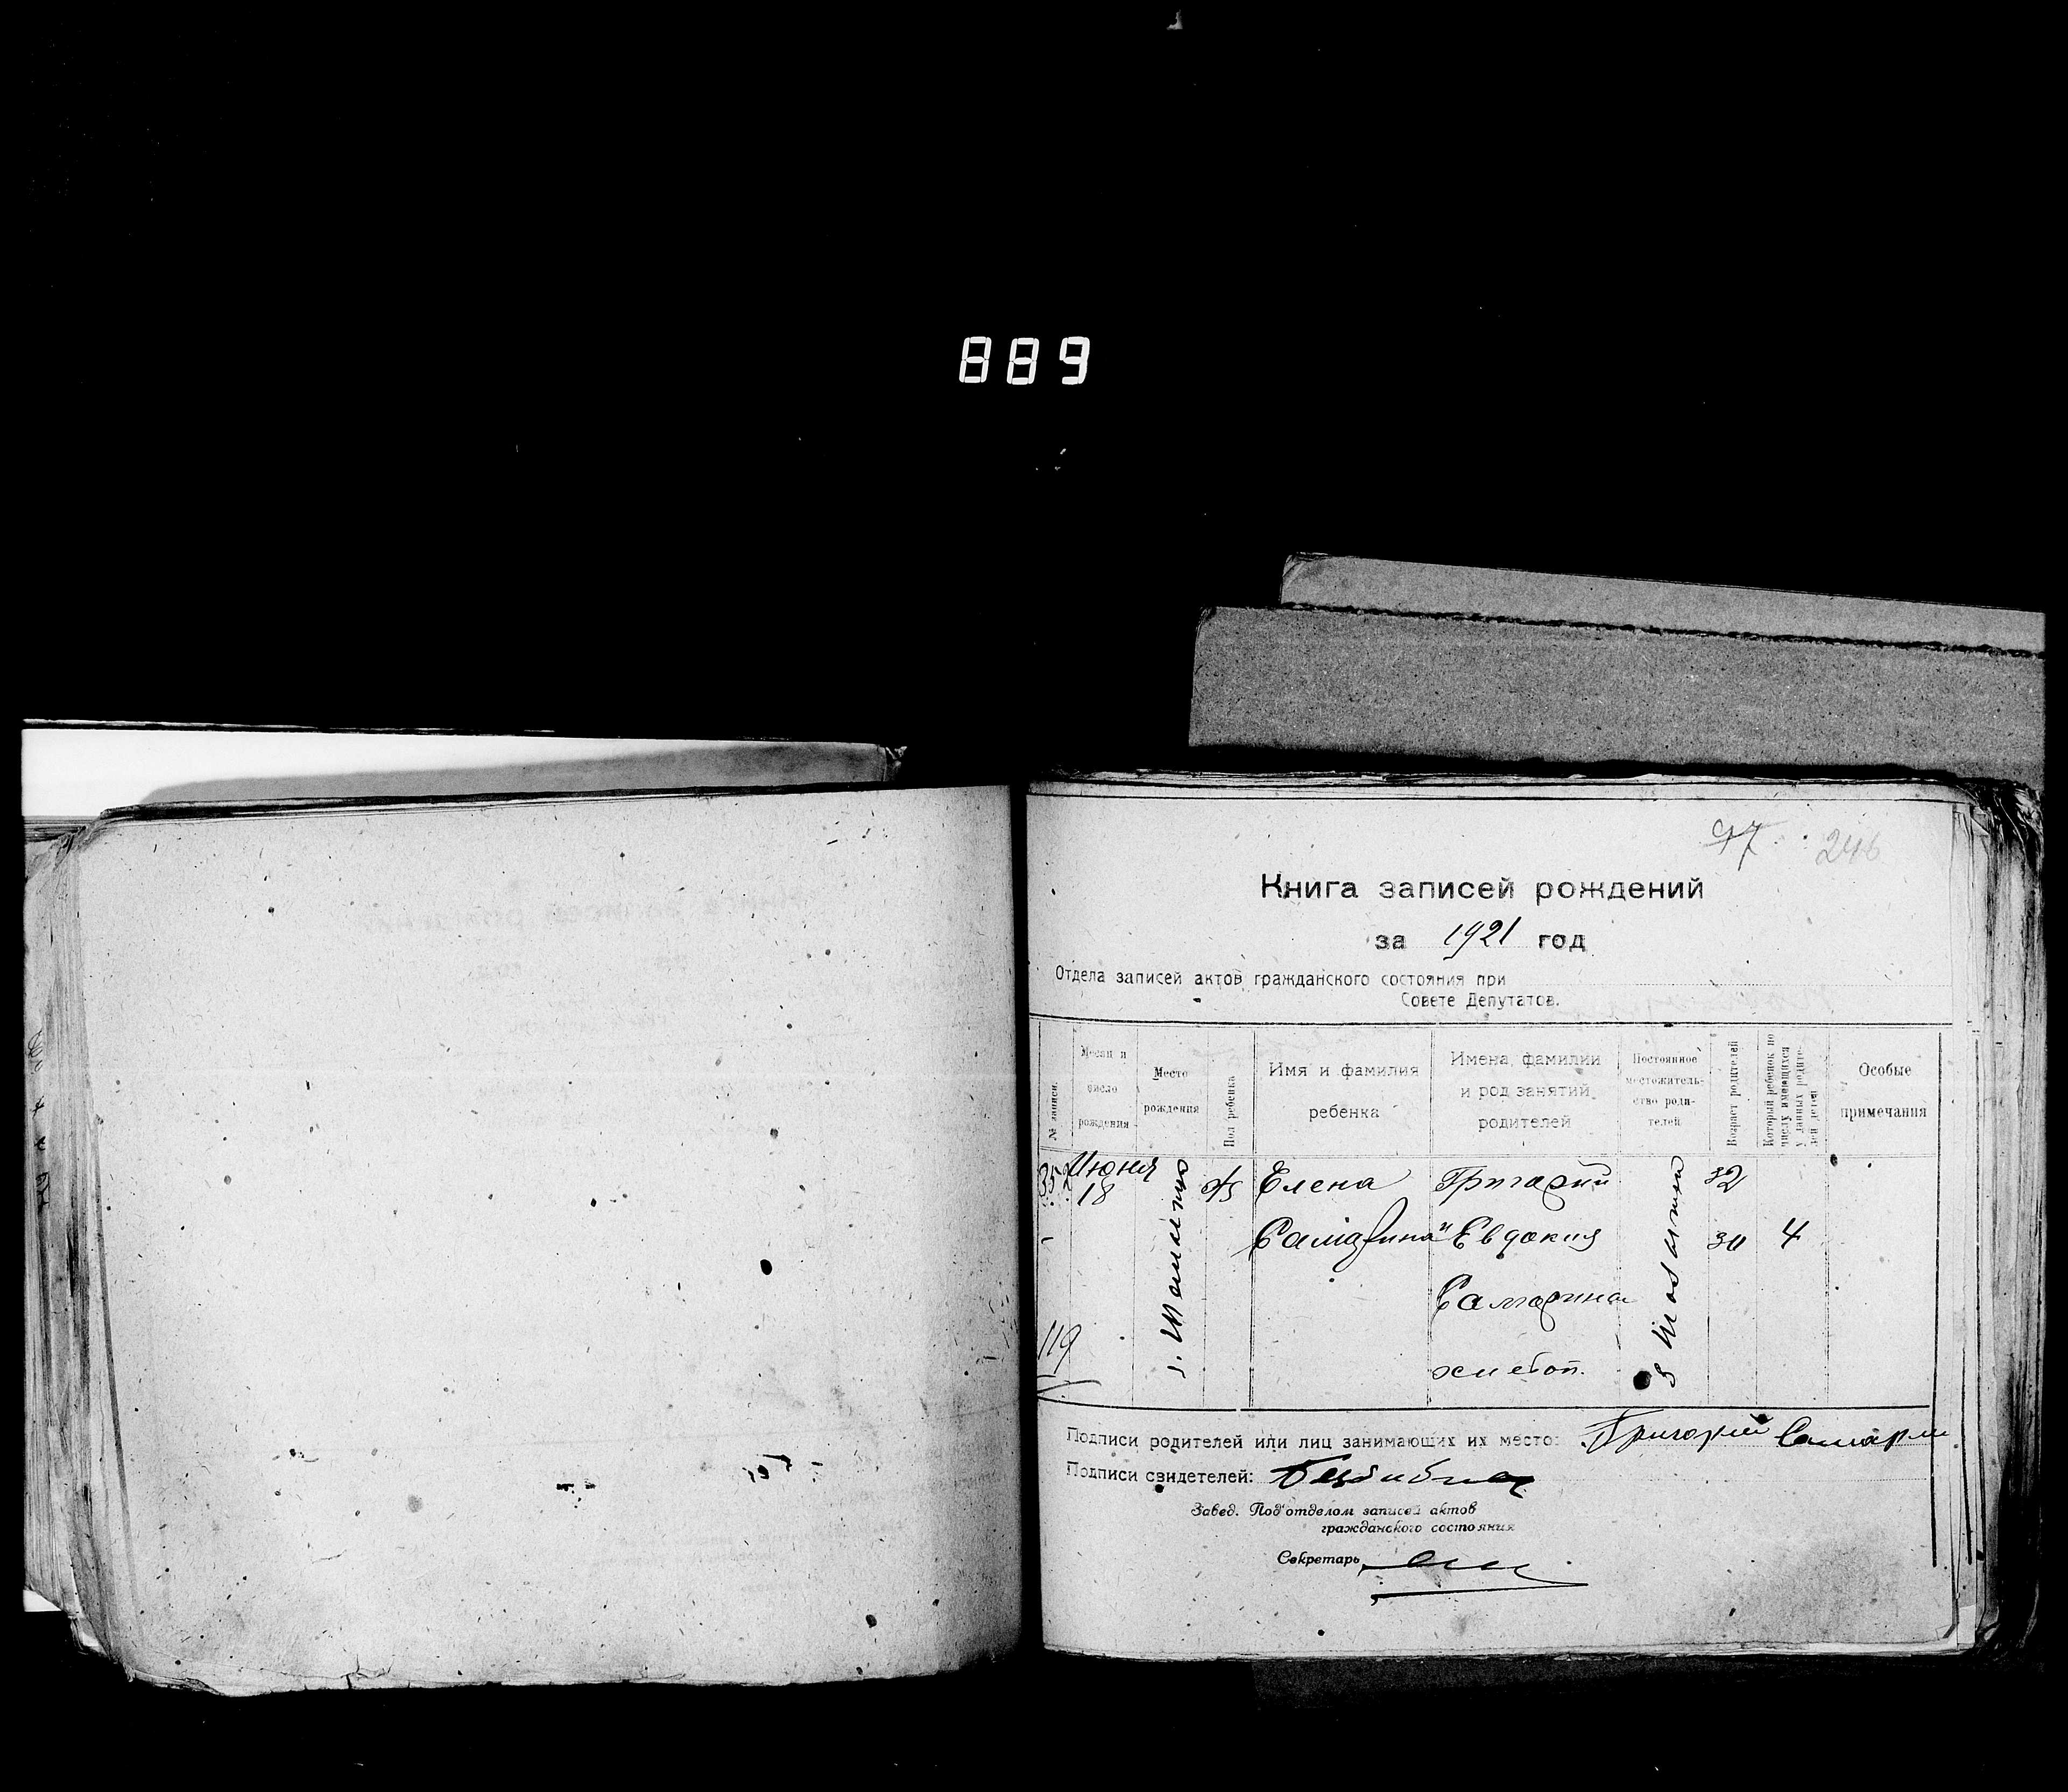 889
97 246
Книга записей рождений
за 1921 год
Отдела записей актов гражданского состояния при
Совете Депутатов.
№ записи.
Месяц и
число
рождения
Место
рождения
Пол ребенка
Имя и фамилия
ребенка
Имена, фамилии
и род занятий
родителей
Постоянное
местожитель-
ство роди-
телей
Возраст родителей
Который ребенок по
числу имеющихся
у данных родите-
лей детей
Особые
примечания
352
Июня
18
119
с.
ж
Елена
Самарина
Григорий
и Евдокия
Самарины
хлебоп.
32
30
4
Подписи родителей или лиц занимающих их место: Григорий Самарин
Подписи свидетелей:
Завед. Под'отделом записей актов
гражданского состояния
Секретарь